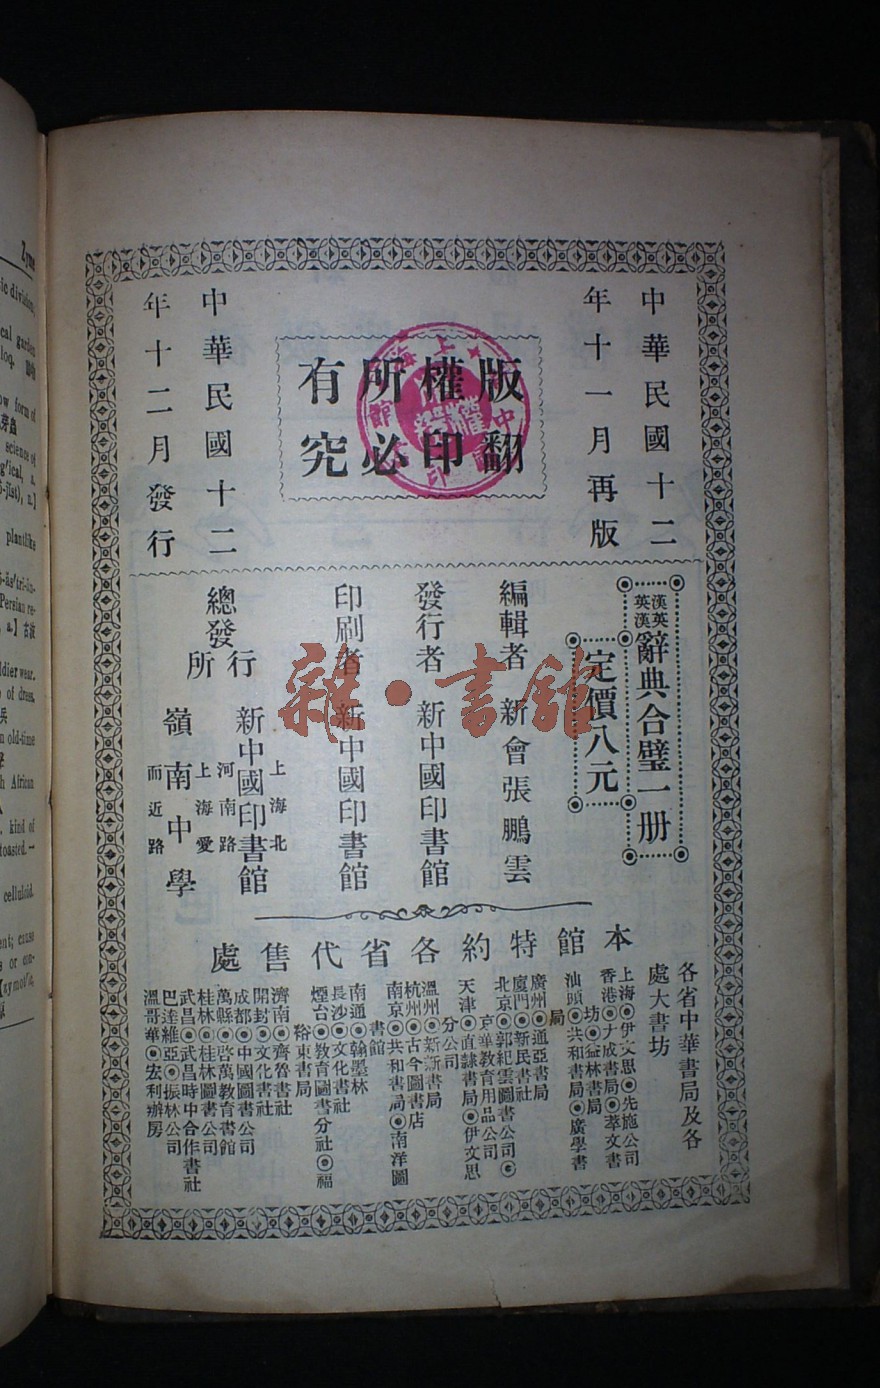 中華民國十二
年十一月再版
版權所有
翻印必究
中華民國十二
年十二月發行
漢英
英漢
辭典合璧一册
定價八元
編輯者 新會張鵬雲
發行者 新中國印書館
印刷者 新中國印書館
總發行所
上海北河南路
新中國印書館
上海愛而近路
嶺南中學
本館特約各省代售處
各省中華書局及各
處大書坊
上海◎伊文思◎先施公司
香港◎大成書局◎萃文書
坊◎益林書局
汕頭◎共和書局◎廣學書
局
廣州◎通亞書局
廈門◎新民書社
北京◎郭紀雲圖書公司◎
京華教育用品公司
天津◎直隸書局◎伊文思
分公司
溫州◎新新書局
杭州◎古今圖書店
南京◎共和書局◎南洋圖
書館
南通◎翰墨林
長沙◎文化書社
煙台◎教育圖書分社◎福
裕東書局
濟南◎齊魯書社
開封◎文化書社
成都◎中國圖書公司
萬縣◎啓萬教育書館
桂林◎桂林圖書公司
武昌◎武昌時中合作書社
巴達維亞◎振林公司
溫哥華◎宏利辦房
雜·書館